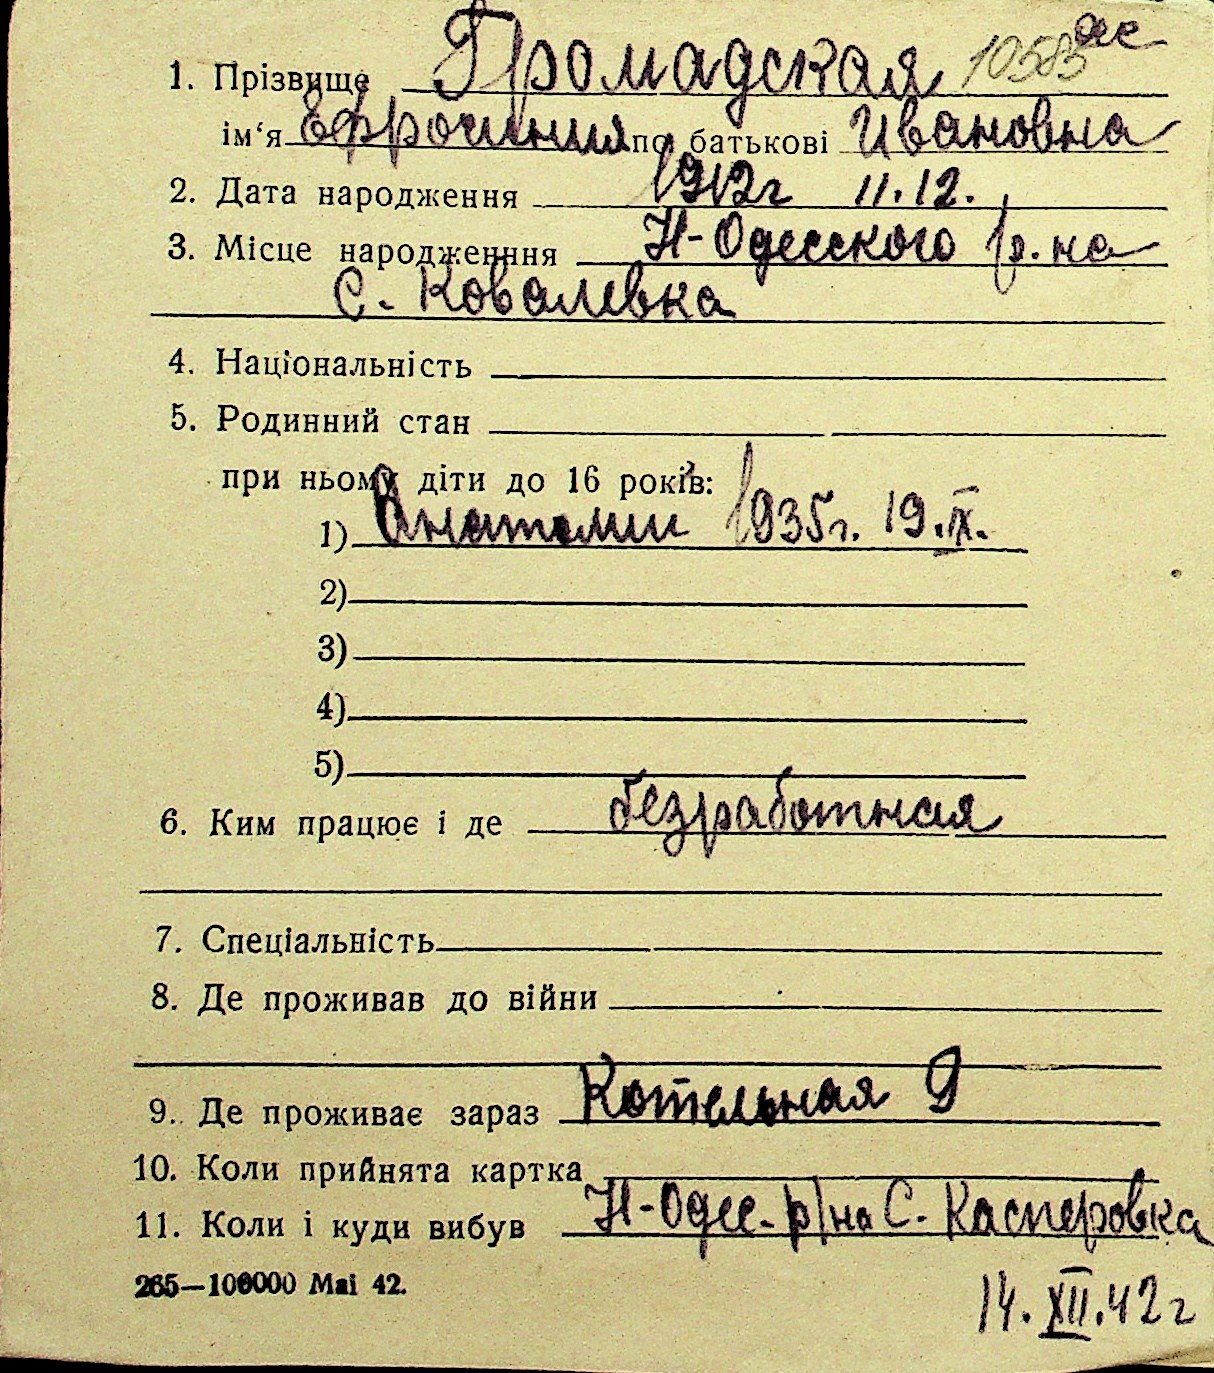 1. Прізвище Громадская 10585
ім‘я Ефросиния по батькові Ивановна
2. Дата народження 1912г 11.12.
3. Місце народженння Н-Одесского р-на
с. Ковалевка
4. Національність
5. Родинний стан
при ньому діти до 16 років:
1) Анатолий 1935г. 19.IX.
2)
3)
4)
5)
6. Ким працює і де безработная
7. Спеціальність
8. Де проживав до війни
9. Де проживає зараз Котельная 9
10. Коли прийнята картка
11. Коли і куди вибув Н-Одес. р/на С. Касперовка
265—100000 Mai 42.
14. XII. 42 г